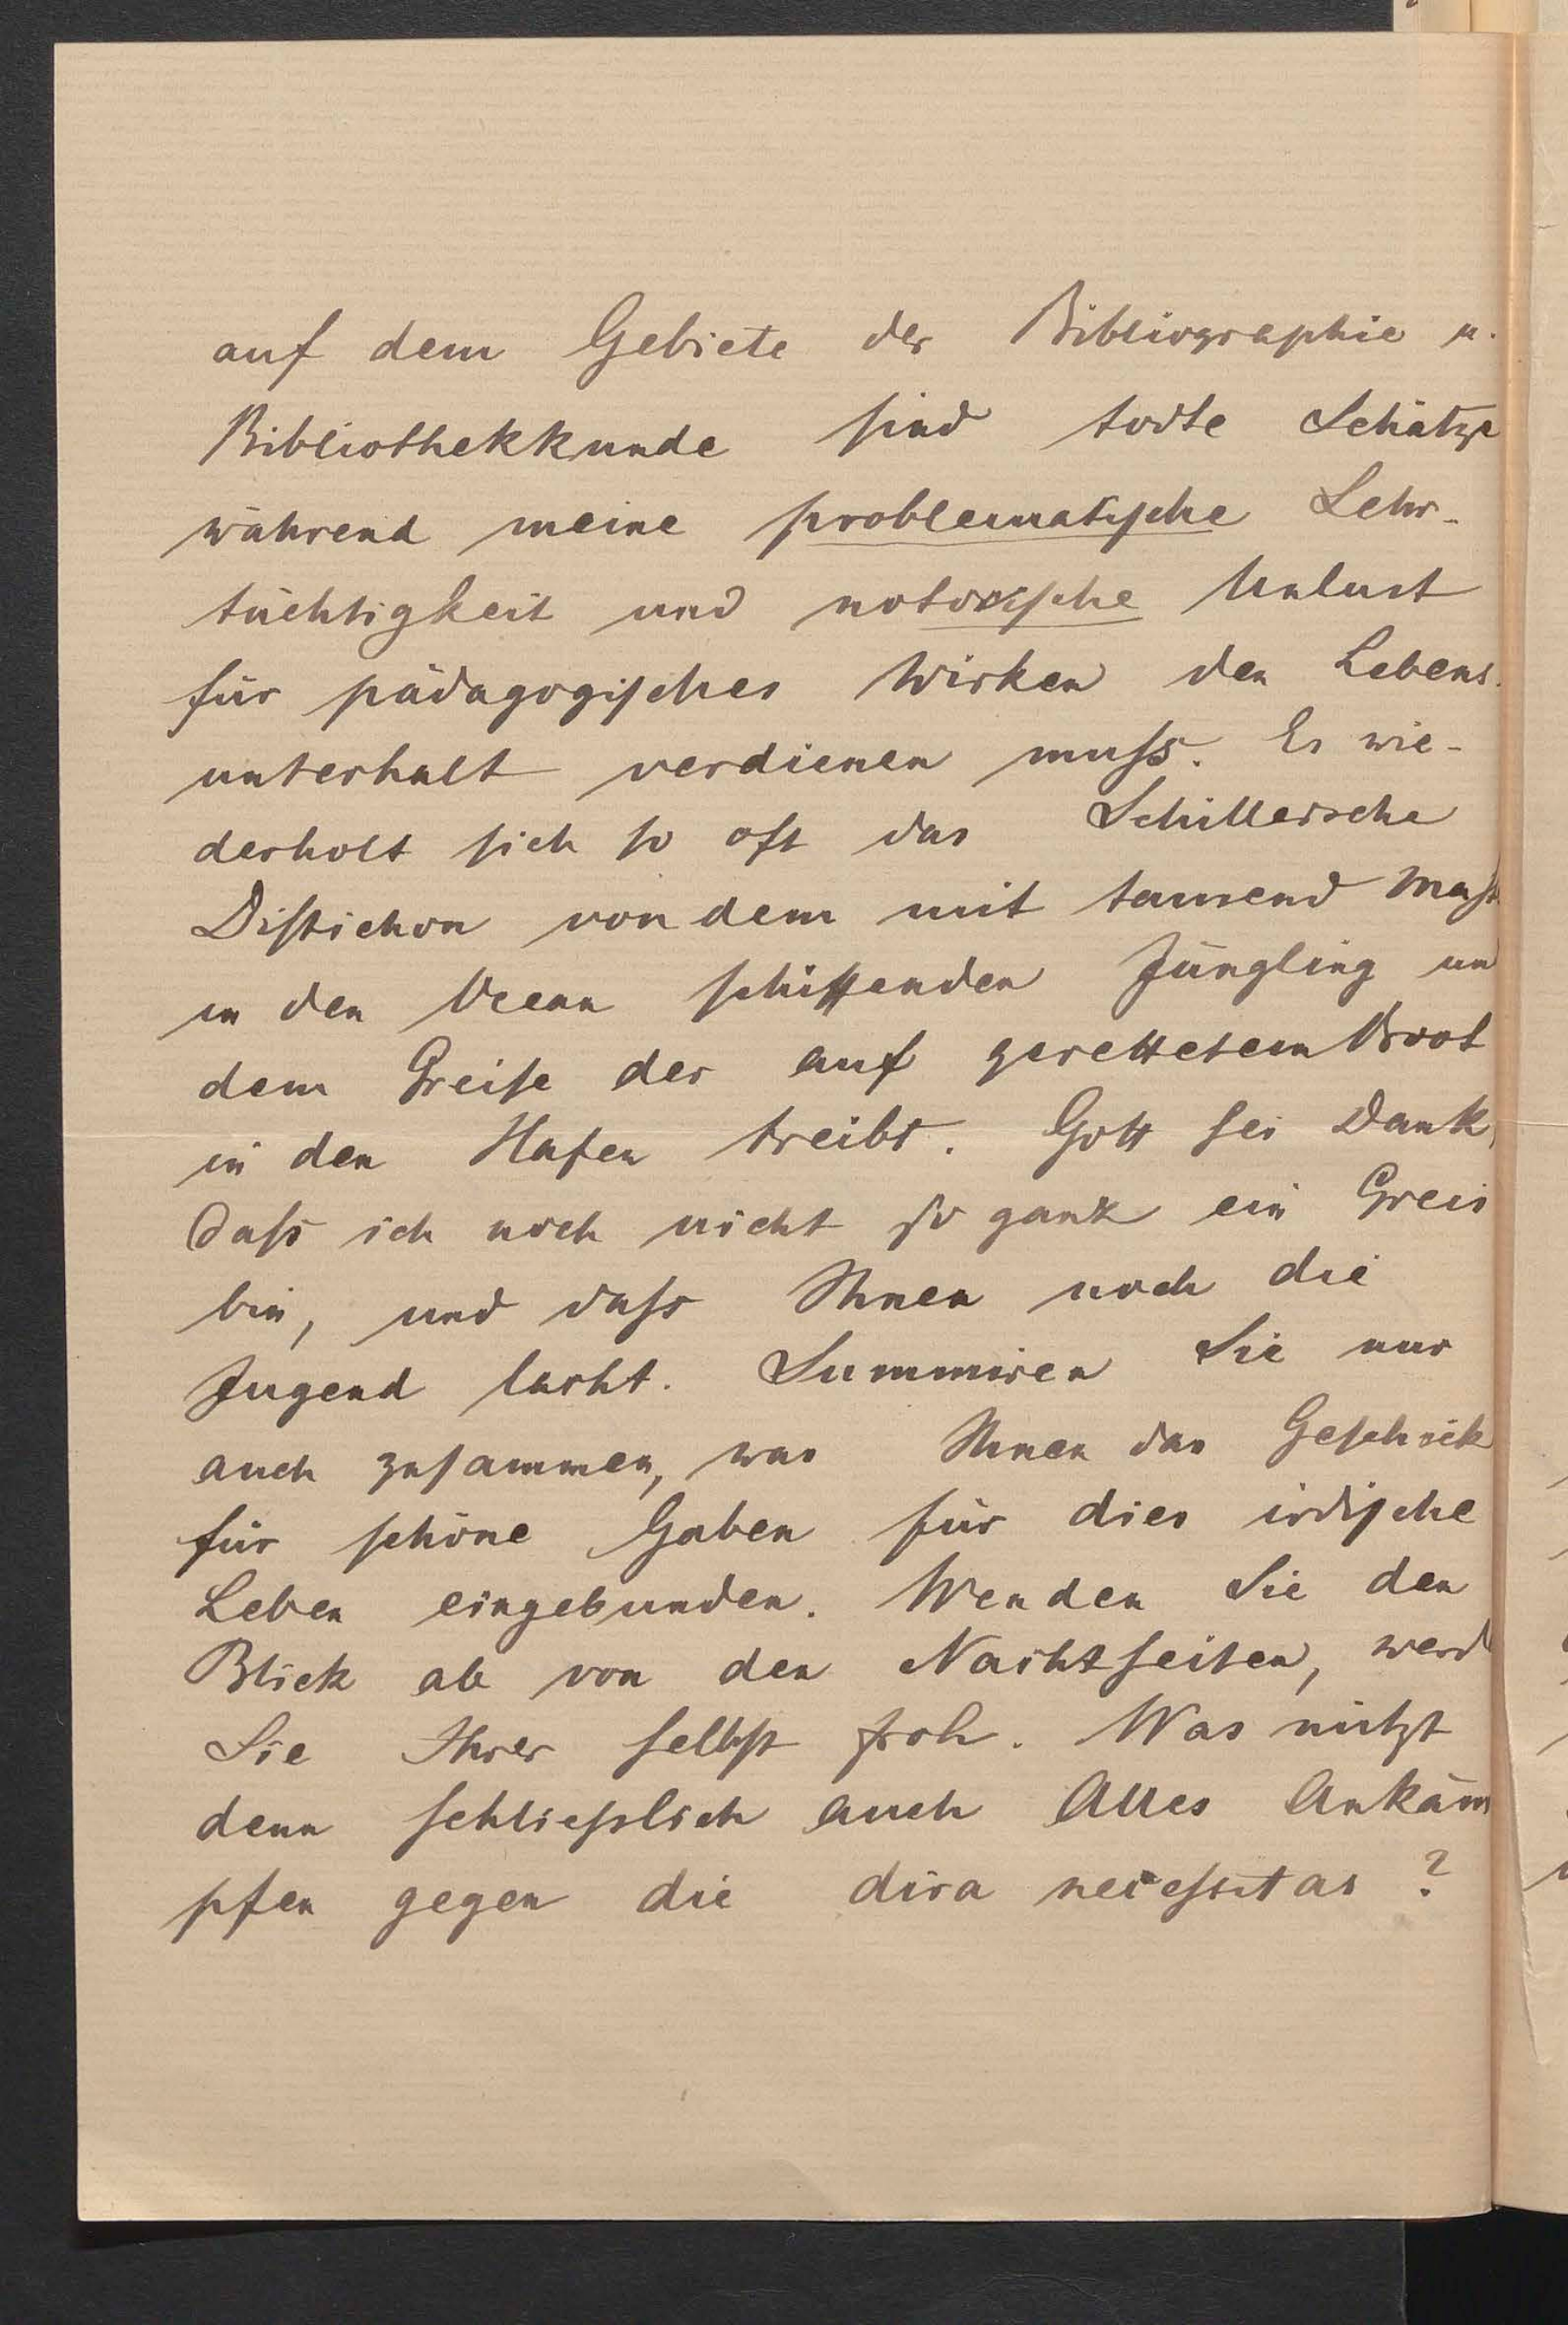 auf dem Gebiete der Bibliographie u.
Bibliothekkunde sind todte Schätze
während meine problematische Lehr-
tüchtigkeit und notorische Unlust
für pädagogisches Wirken den Lebens-
unterhalt verdienen muss. Es wie-
derholt sich so oft das Schillersche
Distichon von dem mit tausend Mast
in den Ocean schiffenden Jüngling un
dem Greise der auf gerettetem Boot
in den Hafen treibt. Gott sei Dank,
dass ich noch nicht so ganz ein Greis
bin, und dass Ihnen noch die
Jugend lacht. Summiren Sie nur
auch zusammen, was Ihnen das Geschick
für schöne Gaben für dies irdische
Leben eingebunden. Wenden Sie den
Blick ab von den Nachtseiten, werd
Sie Ihrer selbst froh. Was nützt
denn schliesslich auch Alles Ankäm
pfen gegen die dira necessitas?